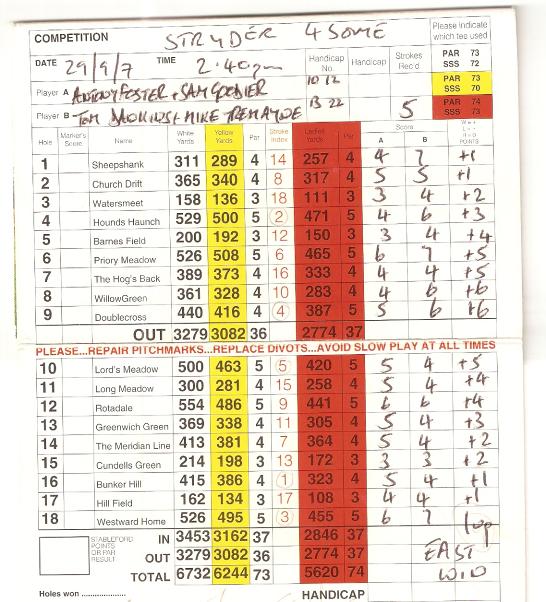 COMPETITION STRYDER 4 SOME Please indicate which tee used
DATE 29/9/7 TIME 2.40pm Handicap No. Handicap Strokes Rec'd PAR 73 SSS 72
Player A ANTONY FOSTER + SAM 10 12 PAR 73 SSS 70
Player B TOM + MIKE TREMAYNE 13 22 5 PAR 74 SSS 73
Hole Marker's Score Name White Yards Yellow Yards Par Stroke Index Ladies Yards Par Score A B W = + L = - H = 0 POINTS
1 Sheepshank 311 289 4 14 257 4 4 7 +1
2 Church Drift 365 340 4 8 317 4 5 5 +1
3 Watersmeet 158 136 3 18 111 3 3 4 +2
4 Hounds Haunch 529 500 5 2 471 5 4 6 +3
5 Barnes Field 200 192 3 12 150 3 3 4 +4
6 Priory Meadow 526 508 5 6 465 5 6 7 +5
7 The Hog's Back 389 373 4 16 333 4 4 4 +5
8 WillowGreen 361 328 4 10 283 4 4 6 +6
9 Doublecross 440 416 4 4 387 5 5 6 +6
OUT 3279 3082 36 2774 37
PLEASE...REPAIR PITCHMARKS...REPLACE DIVOTS...AVOID SLOW PLAY AT ALL TIMES
10 Lord's Meadow 500 463 5 5 420 5 5 4 +5
11 Long Meadow 300 281 4 15 258 4 5 4 +4
12 Rotadale 554 486 5 9 441 5 6 6 +4
13 Greenwich Green 369 338 4 11 305 4 5 4 +3
14 The Meridian Line 413 381 4 7 364 4 5 4 +2
15 Cundells Green 214 198 3 13 172 3 3 3 +2
16 Bunker Hill 415 386 4 1 323 4 5 4 +1
17 Hill Field 162 134 3 17 108 3 4 4 +1
18 Westward Home 526 495 5 3 455 5 6 7 1up
STABLEFORD POINTS OR PAR RESULT
IN 3453 3162 37 2846 37
OUT 3279 3082 36 2774 37 EAST
TOTAL 6732 6244 73 5620 74 WIN
Holes won .................. HANDICAP